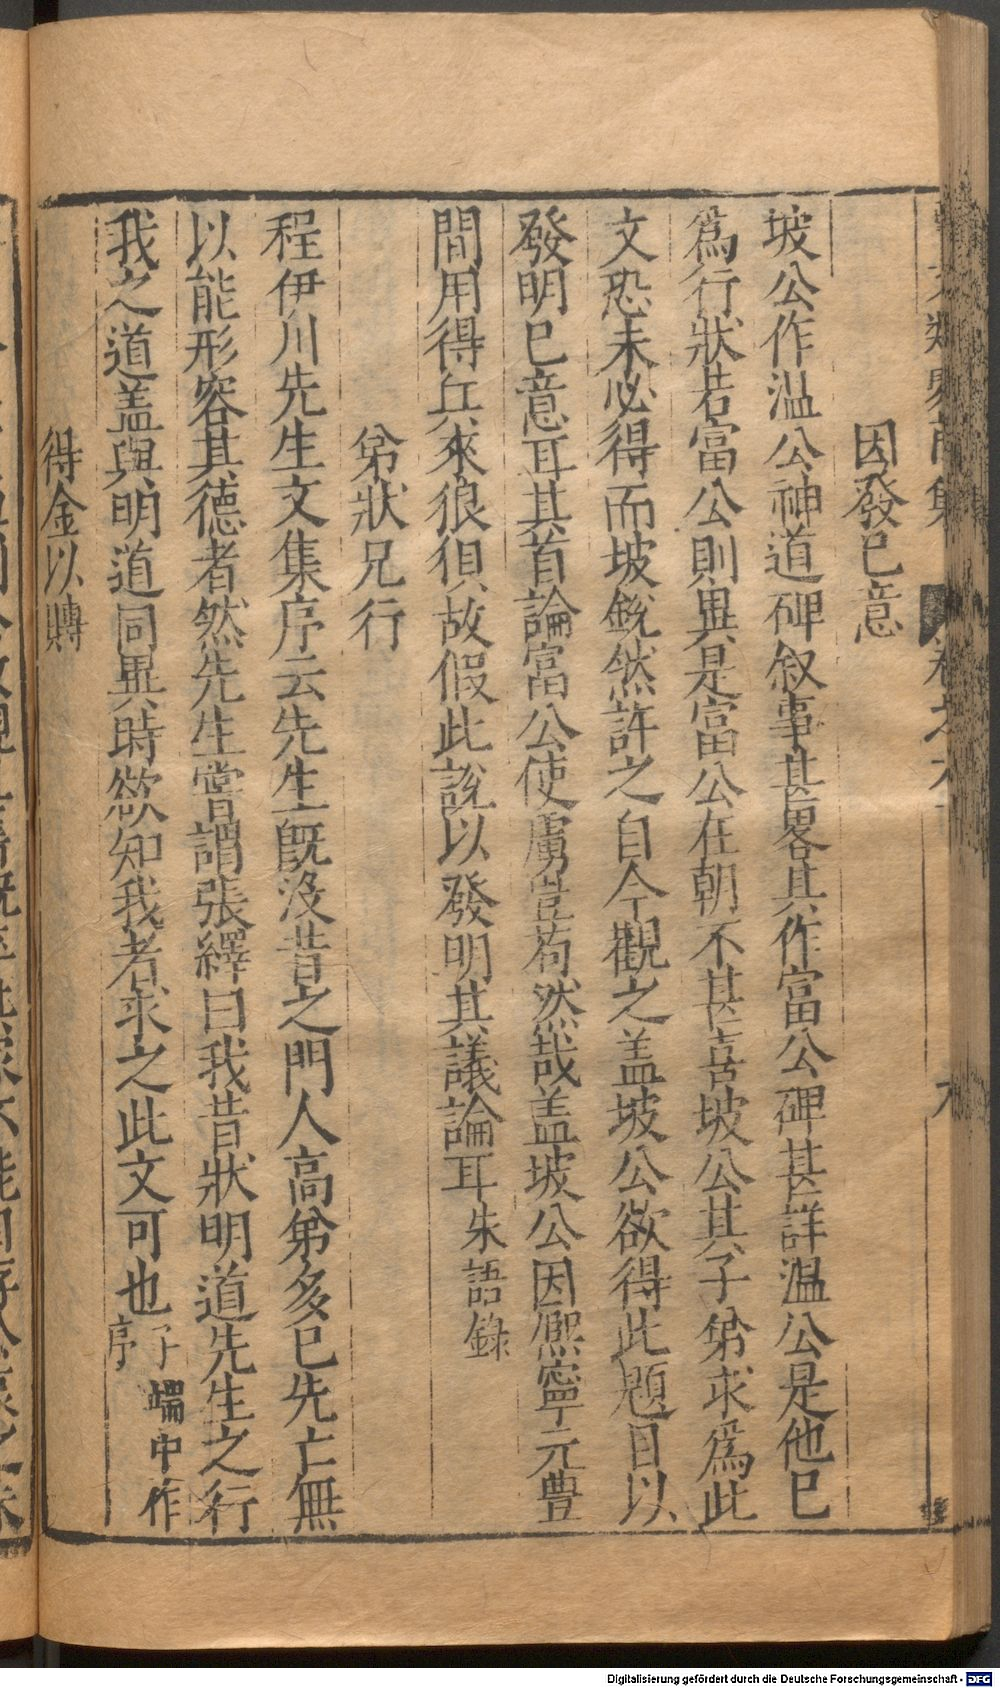 因發已意
坡公作温公神道碑叙事甚畧其作富公碑甚詳温公是他已
爲行狀若富公則異是富公在朝不甚喜坡公其子弟求爲此
文恐未必得而坡銳然許之自今觀之盖坡公欲得此題目以
發明已意耳其首論富公使虜豈苟然哉盖坡公因熈寧元豊
間用得兵來狼狽故假此說以發明其議論耳朱語錄
弟狀兄行
程伊川先生文集序云先生旣没昔之門人高弟多已先亡無
以能形容其德者然先生嘗謂張繹曰我昔狀明道先生之行
我之道盖與明道同異時欲知我者求之此文可也子端中作序
得金以賻
Digitalisierung gefördert durch die Deutsche Forschungsgemeinschaft - DFG